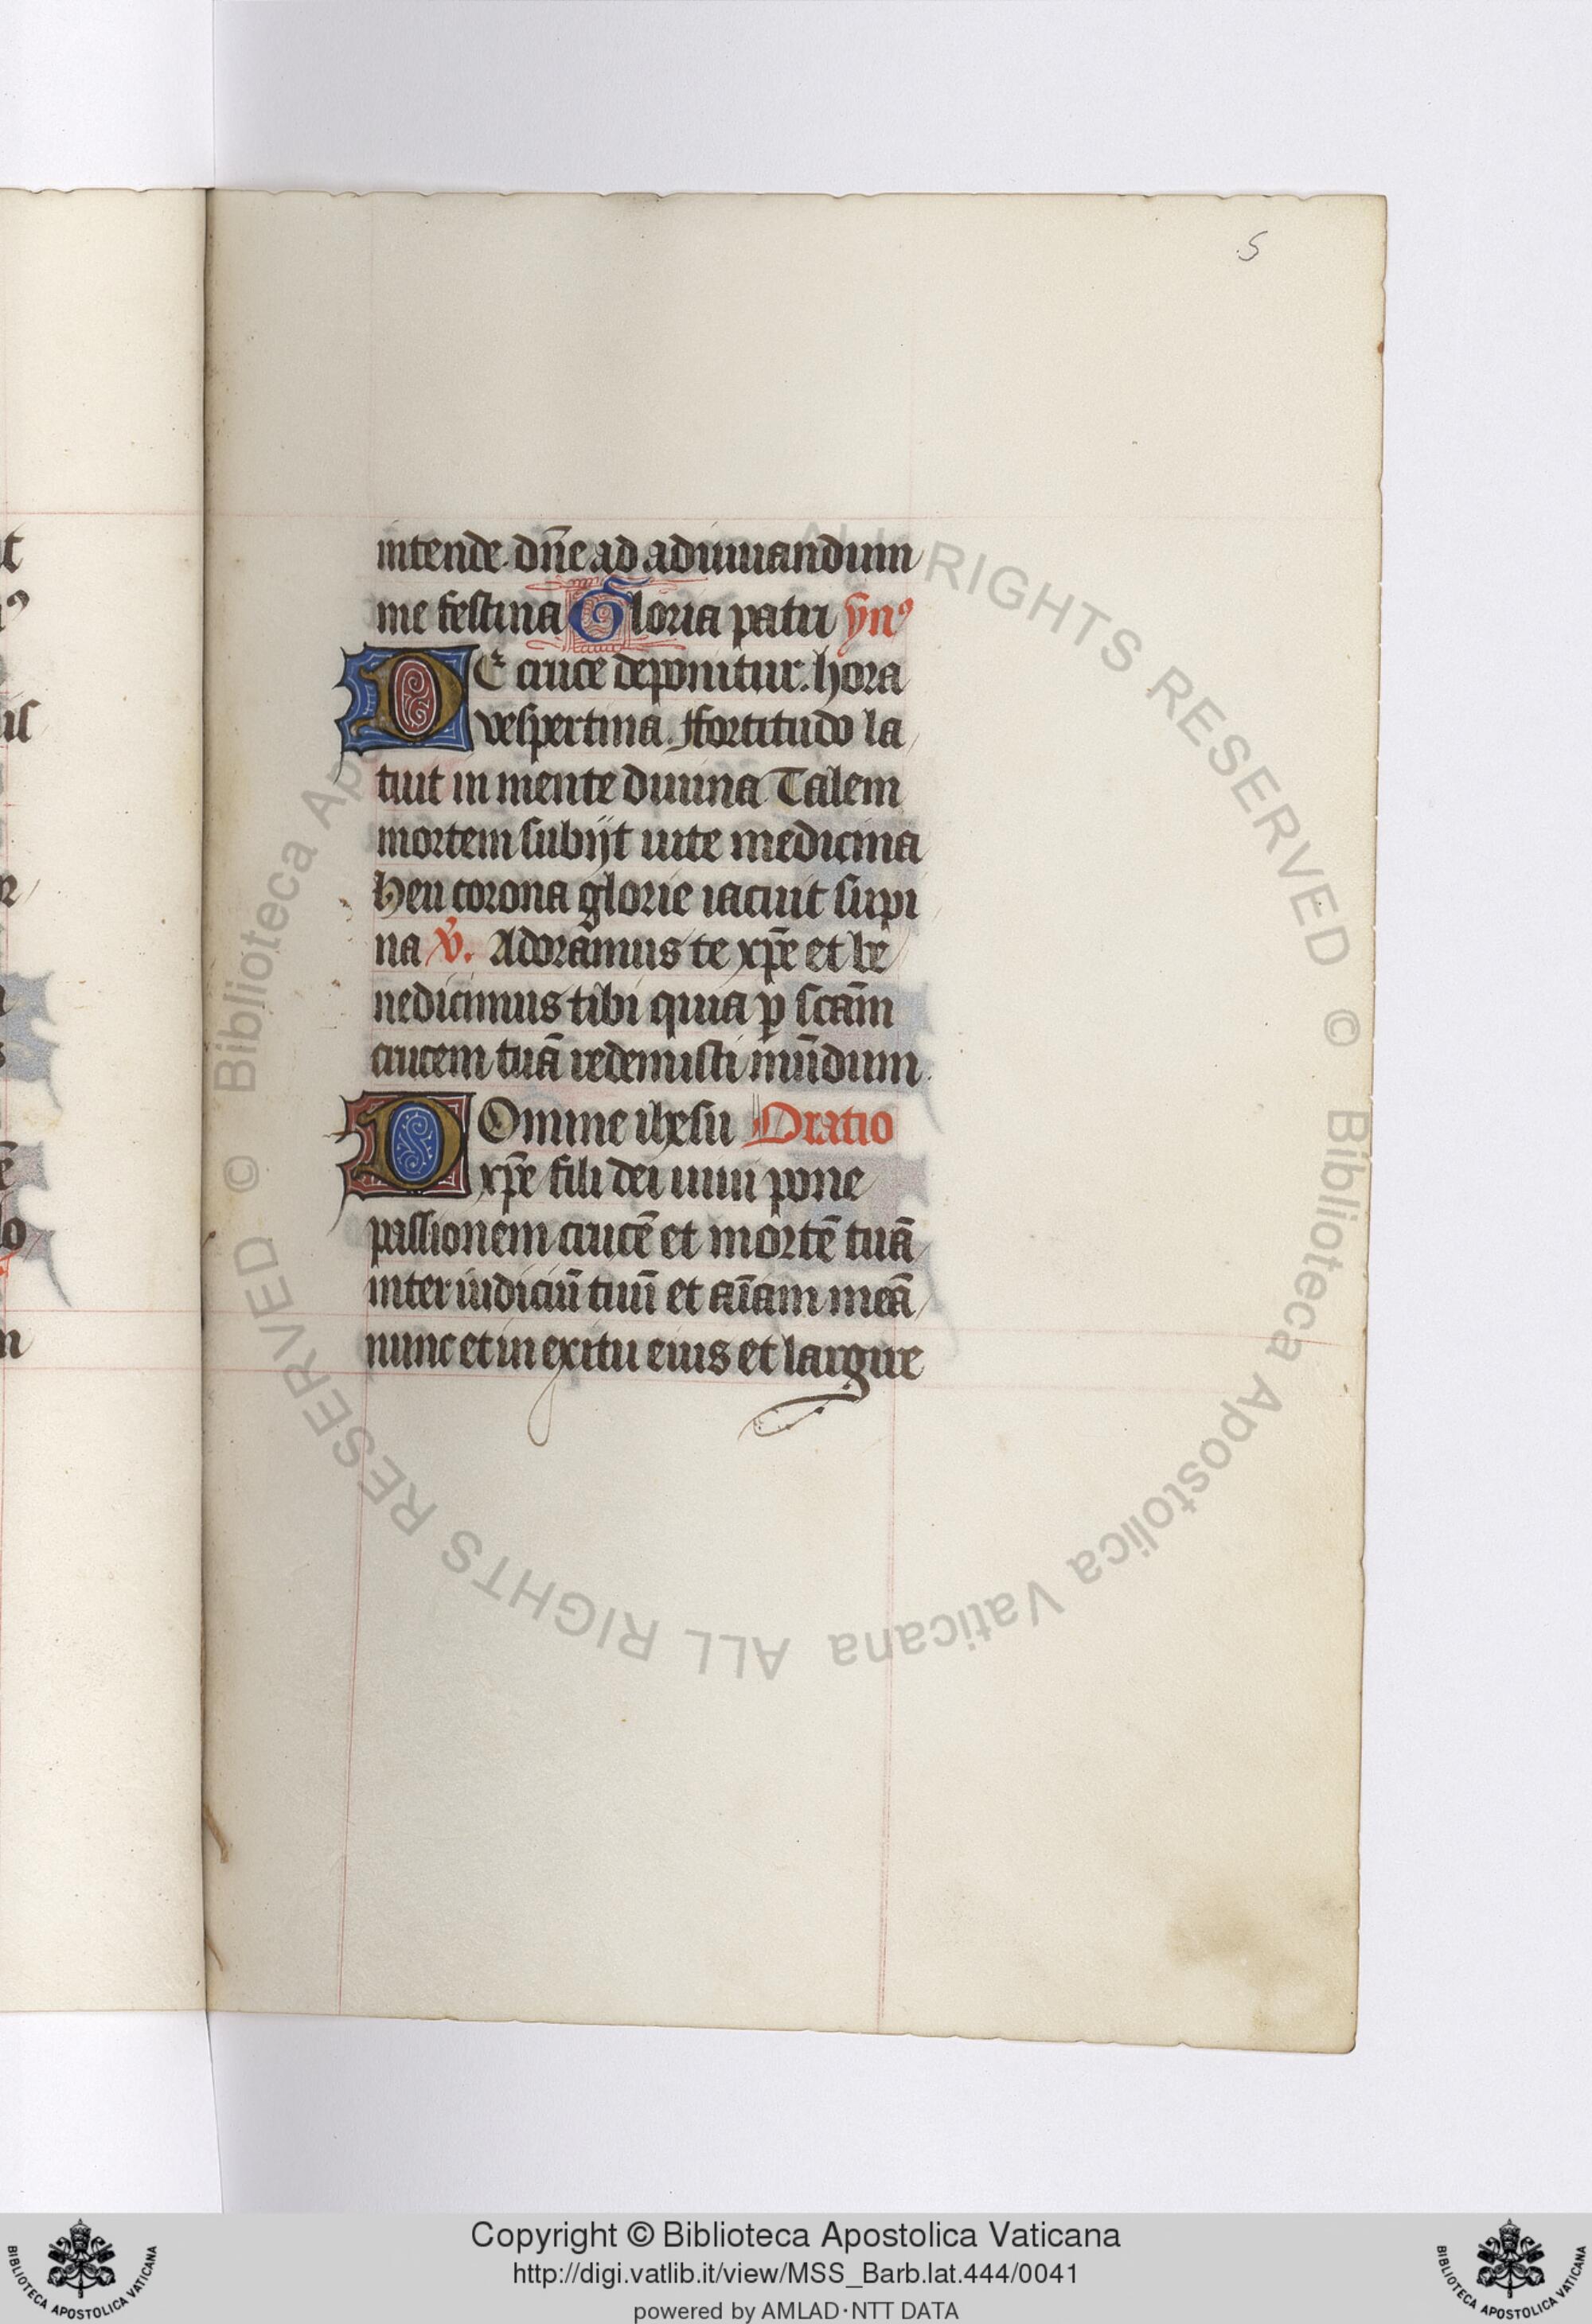 5
intende dñe ad adiuuandum
me festina Gloria patri yn⁹
DE cruce deponitur. hora
vespertina. Ffortitudo la
tuit in mente diuina Talem
mortem subijt uite medicina
heu corona glorie iacuit supi
na v̄. Adoramus te xp̄e et be
nedicimus tibi quia ꝑ scām
crucem tuā redemisti mūdum.
DOmine ihesu Oratio
xp̄e fili dei uiui pone
passionem crucē et mortē tuā
inter iudiciū tuū et aīam meā
nunc et in exitu eius et largire
© Biblioteca Apostolica Vaticana ALL RIGHTS RESERVED
Copyright © Biblioteca Apostolica Vaticana
http://digi.vatlib.it/view/MSS_Barb.lat.444/0041
powered by AMLAD·NTT DATA
BIBLIOTECA APOSTOLICA VATICANA
BIBLIOTECA APOSTOLICA VATICANA